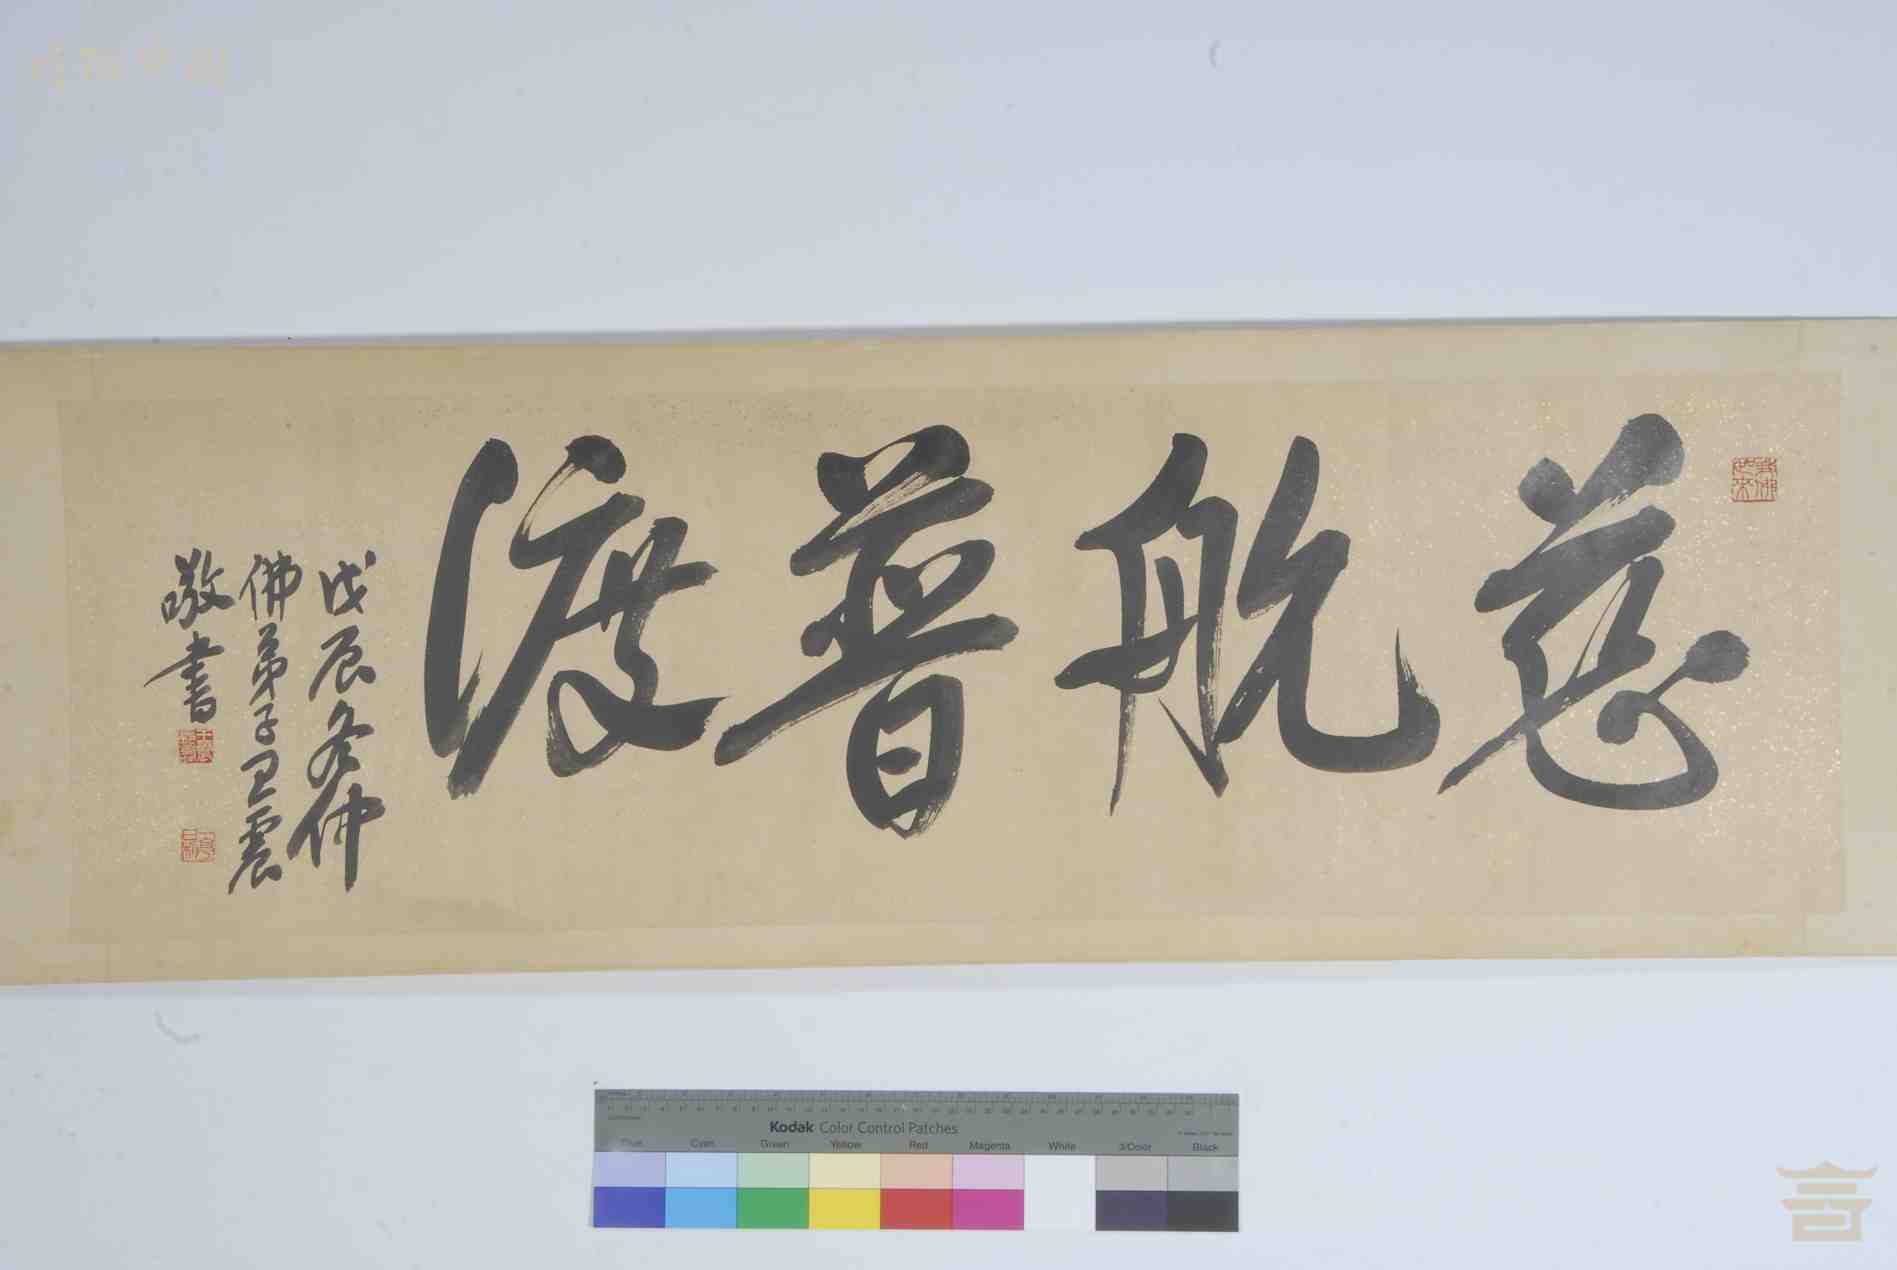 慈航普渡
戊辰冬佛
佛弟子王震
敬書
Kodak Color Control Patches
Blue Cyan Green Yellow Red Magenta White 3/Color Black